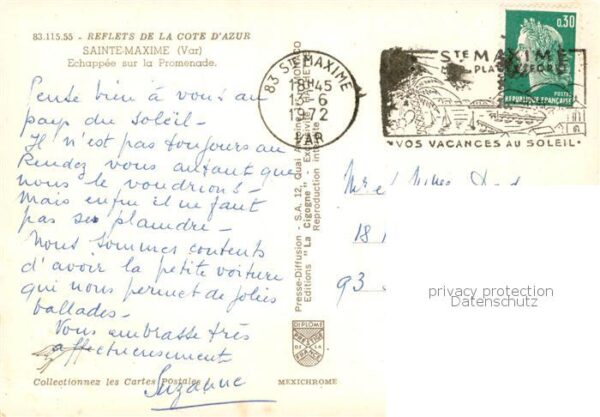 83.115.55 - REFLETS DE LA COTE D'AZUR
SAINTE-MAXIME (Var)
Echappée sur la Promenade.
Pense bien à vous au
pays du soleil -
Il n'est pas toujours au
Rendez vous autant que
nous le voudrions -
Mais enfin il ne faut
pas se plaindre -
Nous sommes contents
d'avoir la petite voiture
qui nous permet de jolies
ballades -
Vous embrasse très
affectueusement
Suzanne
Collectionnez les Cartes Postales !
Presse-Diffusion - S.A. 12, Quai
Editions "La Cigogne" -
Reproduction
DIPLOME
PRESTIGE
DE LA
FRANCE
MEXICHROME
83 STE MAXIME
18H45
6
1972
VAR
STE MAXIME
VOS VACANCES AU SOLEIL
0,30
POSTES
REPUBLIQUE FRANÇAISE
Mr et
18
93
privacy protection
Datenschutz